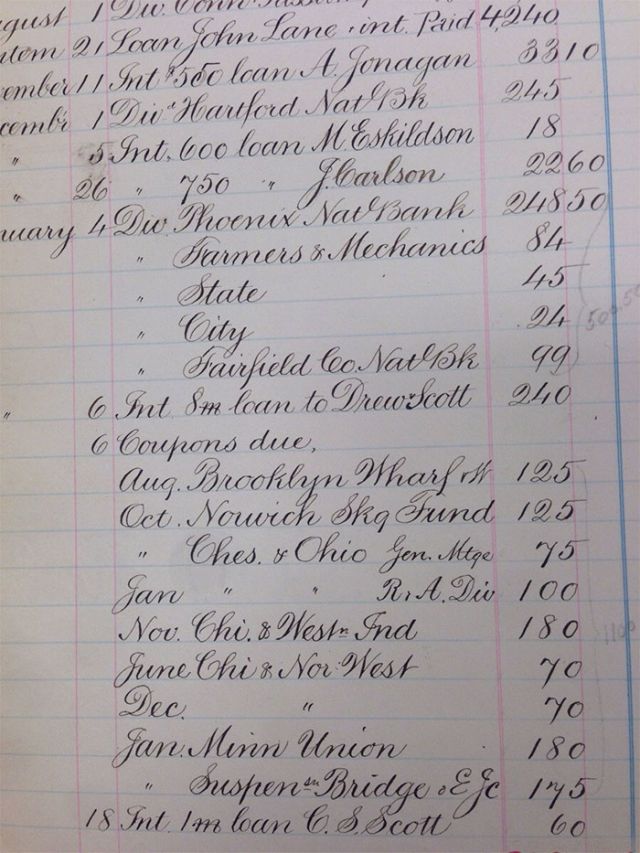 gust 1 Div. Conn
tem 21 Loan John Lane . int. Paid 4,240
ember 11 Int $550 loan A. Jonagan 33 10
cembr 1 Div'd Hartford Nat'l Bk 245
" 5 Int. 600 loan M. Eskildson 18
" 26 " 750 " J. Carlson 22 60
nuary 4 Div. Phoenix Nat'l Bank 248 50
" Farmers & Mechanics 84
" State 45
" City 24
" Fairfield Co. Nat'l Bk 99
" 6 Int 8m loan to Drew Scott 240
6 Coupons due,
Aug. Brooklyn Wharf 125
Oct. Norwich Skg Fund 125
" Ches. & Ohio Gen. Mtge 75
Jan " " R, A. Div 100
Nov. Chi. & Westn Ind 180
June Chi & Nor. West 70
Dec. " 70
Jan. Minn Union 180
" Suspensn Bridge & E Jc 175
18 Int. 1m loan C. S. Scott 60